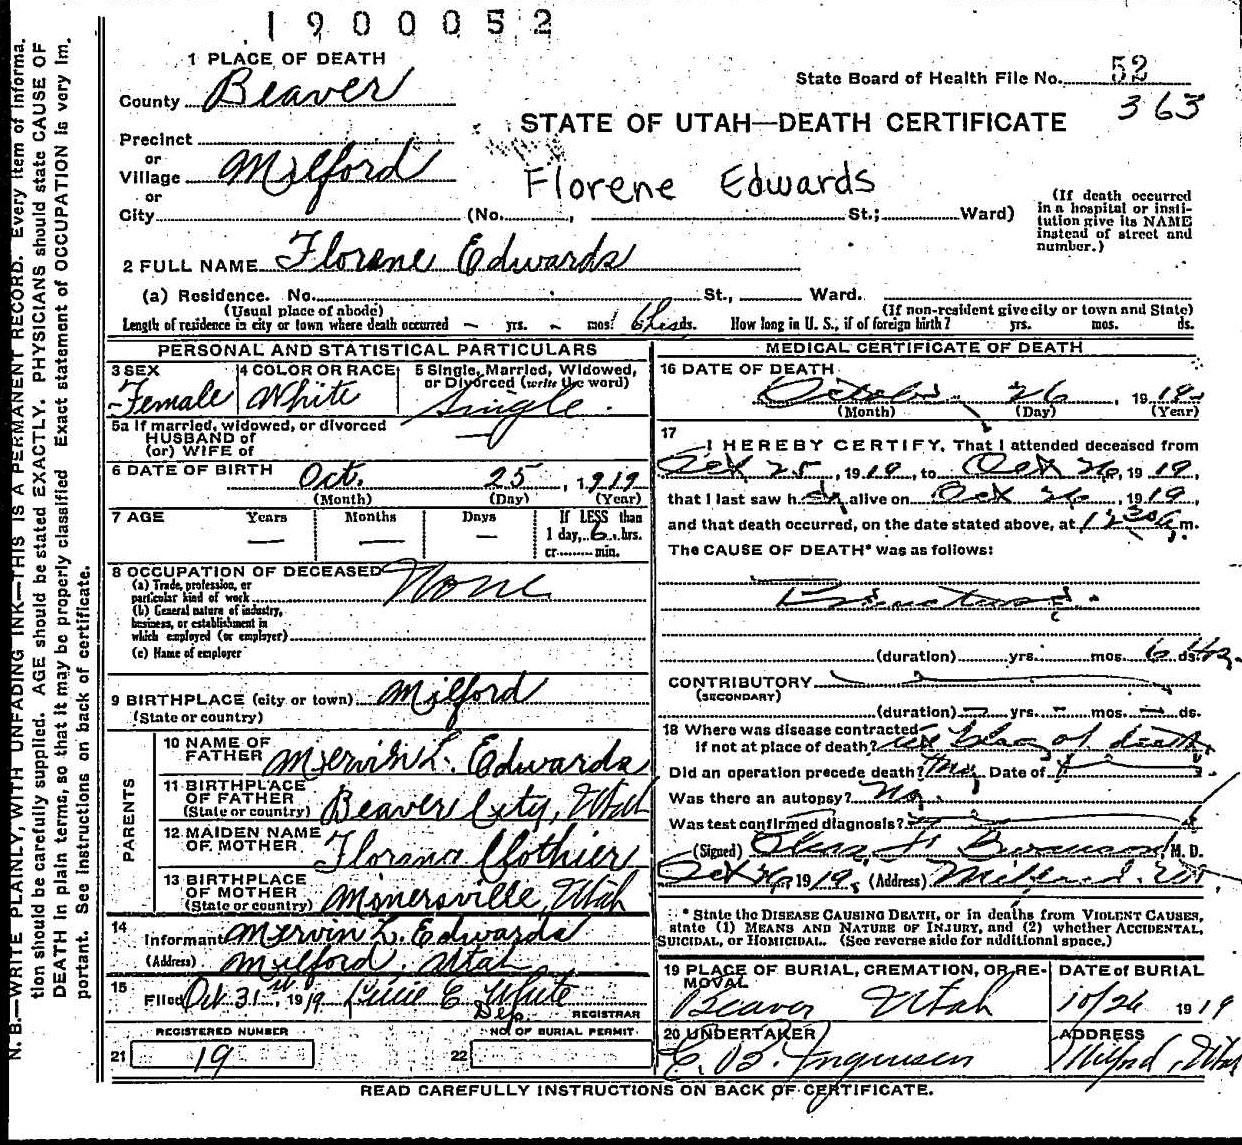 1900052
1 PLACE OF DEATH
State Board of Health File No. 52
County Beaver
363
STATE OF UTAH—DEATH CERTIFICATE
Precinct
or
Village Milford
Florene Edwards
or
City (No. , St.; Ward)
(If death occurred in a hospital or insti-
tution give its NAME instead of street and number.)
2 FULL NAME Florene Edwards
(a) Residence. No. St., Ward.
(Usual place of abode) (If non-resident give city or town and State)
Length of residence in city or town where death occurred – yrs. – mos. 6 ds. How long in U. S., if of foreign birth? yrs. mos. ds.
PERSONAL AND STATISTICAL PARTICULARS
3 SEX Female
4 COLOR OR RACE White
5 Single, Married, Widowed,
or Divorced (write the word)
Single
5a If married, widowed, or divorced
HUSBAND of
(or) WIFE of —
6 DATE OF BIRTH Oct. 25, 1919
(Month) (Day) (Year)
7 AGE Years Months Days If LESS than
— — — 1 day, 6 hrs.
or min.
8 OCCUPATION OF DECEASED None
(a) Trade, profession, or
particular kind of work
(b) General nature of industry,
business, or establishment in
which employed (or employer)
(c) Name of employer
9 BIRTHPLACE (city or town) Milford
(State or country)
PARENTS
10 NAME OF
FATHER Mervin L. Edwards
11 BIRTHPLACE
OF FATHER
(State or country) Beaver City, Utah
12 MAIDEN NAME
OF MOTHER Florana Clothier
13 BIRTHPLACE
OF MOTHER
(State or country) Minersville, Utah
14
Informant Mervin L. Edwards
(Address) Milford, Utah
15
Filed Oct 31st, 1919 Lucie E. White
Dep. REGISTRAR
REGISTERED NUMBER NO. OF BURIAL PERMIT
21 19 22
MEDICAL CERTIFICATE OF DEATH
16 DATE OF DEATH
October 26, 1919
(Month) (Day) (Year)
17
I HEREBY CERTIFY, That I attended deceased from
Oct 25, 1919, to Oct 26, 1919,
that I last saw her alive on Oct 26, 1919,
and that death occurred, on the date stated above, at 12 30 a m.
The CAUSE OF DEATH* was as follows:
(duration) yrs. mos. 6 ds. hrs.
CONTRIBUTORY
(SECONDARY)
(duration) – yrs. – mos. – ds.
18 Where was disease contracted
If not at place of death? at place of death
Did an operation precede death? No. Date of
Was there an autopsy? No.
Was test confirmed diagnosis?
(Signed) M. D.
Oct 26, 1919, (Address) Milford, Ut.
* State the DISEASE CAUSING DEATH, or in deaths from VIOLENT CAUSES,
state (1) MEANS AND NATURE OF INJURY, and (2) whether ACCIDENTAL,
SUICIDAL, or HOMICIDAL. (See reverse side for additional space.)
19 PLACE OF BURIAL, CREMATION, OR RE-
MOVAL
Beaver Utah
DATE of BURIAL
10/26 1919
20 UNDERTAKER
ADDRESS
Milford, Utah
READ CAREFULLY INSTRUCTIONS ON BACK OF CERTIFICATE.
N. B.—WRITE PLAINLY, WITH UNFADING INK—THIS IS A PERMANENT RECORD. Every item of informa-
tion should be carefully supplied. AGE should be stated EXACTLY. PHYSICIANS should state CAUSE OF
DEATH in plain terms, so that it may be properly classified Exact statement of OCCUPATION is very im-
portant. See instructions on back of certificate.